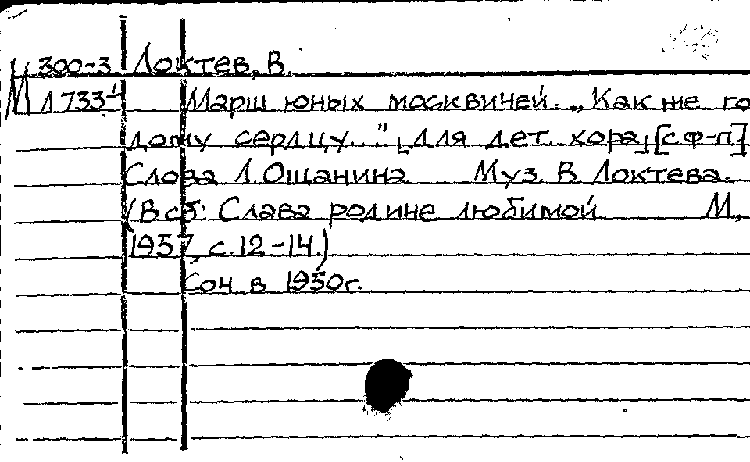 М 300-3 Локтев, В.
1733-4 Марш юных москвичей. „Как не го
дому сердцу..." [для дет. хора] [с ф-п]
Слова Л. Ошанина. Муз. В. Локтева.
(В сб: Слава родине любимой М.,
1957, с. 12-14.)
Соч в 1950г.